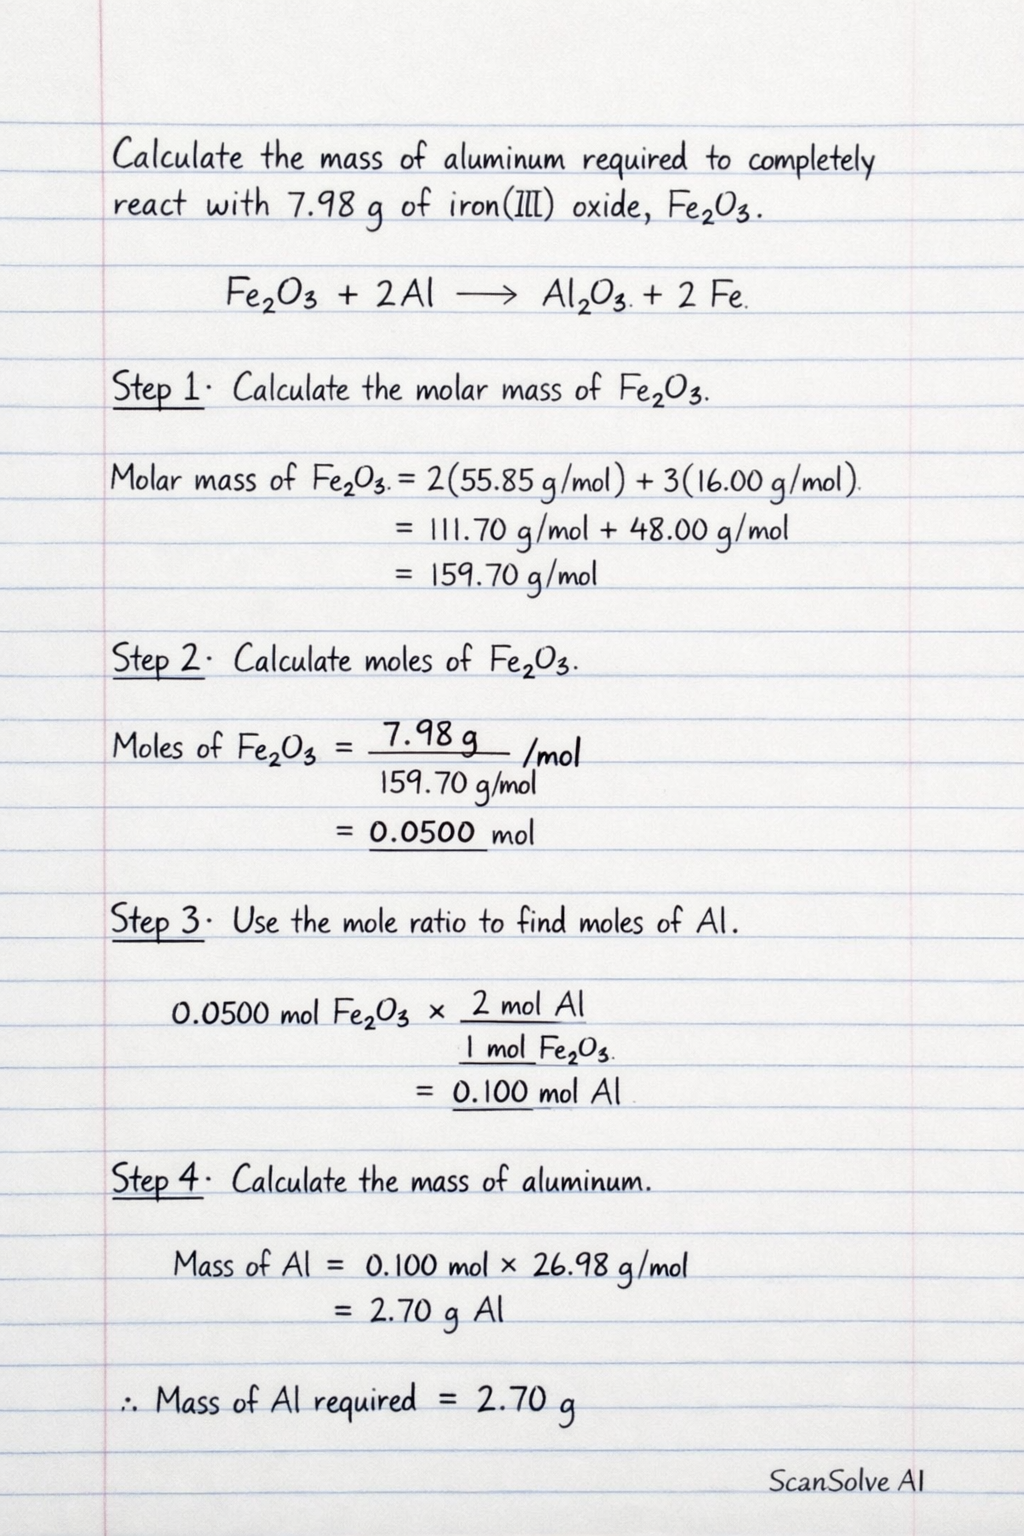 Calculate the mass of aluminum required to completely
react with 7.98 g of iron(III) oxide, Fe₂O₃.
Fe₂O₃ + 2 Al ⟶ Al₂O₃. + 2 Fe.
Step 1· Calculate the molar mass of Fe₂O₃.
Molar mass of Fe₂O₃. = 2(55.85 g/mol) + 3(16.00 g/mol).
= 111.70 g/mol + 48.00 g/mol
= 159.70 g/mol
Step 2· Calculate moles of Fe₂O₃.
Moles of Fe₂O₃ = 7.98 g /mol
159.70 g/mol
= 0.0500 mol
Step 3· Use the mole ratio to find moles of Al.
0.0500 mol Fe₂O₃ × 2 mol Al
1 mol Fe₂O₃.
= 0.100 mol Al
Step 4· Calculate the mass of aluminum.
Mass of Al = 0.100 mol × 26.98 g/mol
= 2.70 g Al
∴ Mass of Al required = 2.70 g
ScanSolve AI